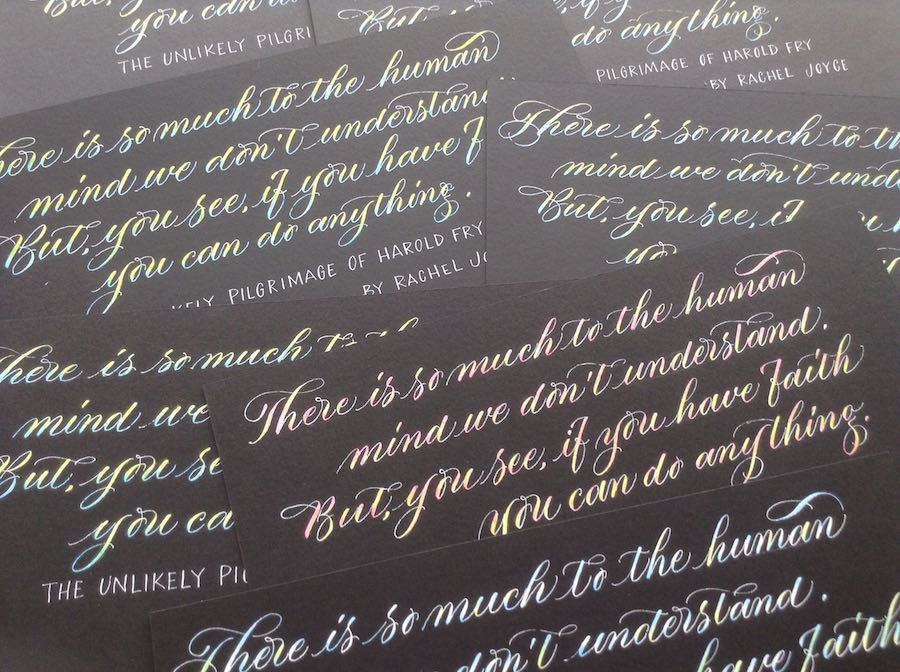 you can do anything.
THE UNLIKELY
do anything.
PILGRIMAGE OF HAROLD FRY
BY RACHEL JOYCE
There is so much to the human
mind we don't understand
But, you see, if you have
you can do anything.
PILGRIMAGE OF HAROLD FRY
BY RACHEL
There is so much to
mind we don't
But, you see, if
There is so much
mind we
But, you
you
THE UNLIKELY
There is so much to the human
mind we don't understand.
But, you see, if you have faith
you can do anything.
There is so much to the human
don't understand.
have faith